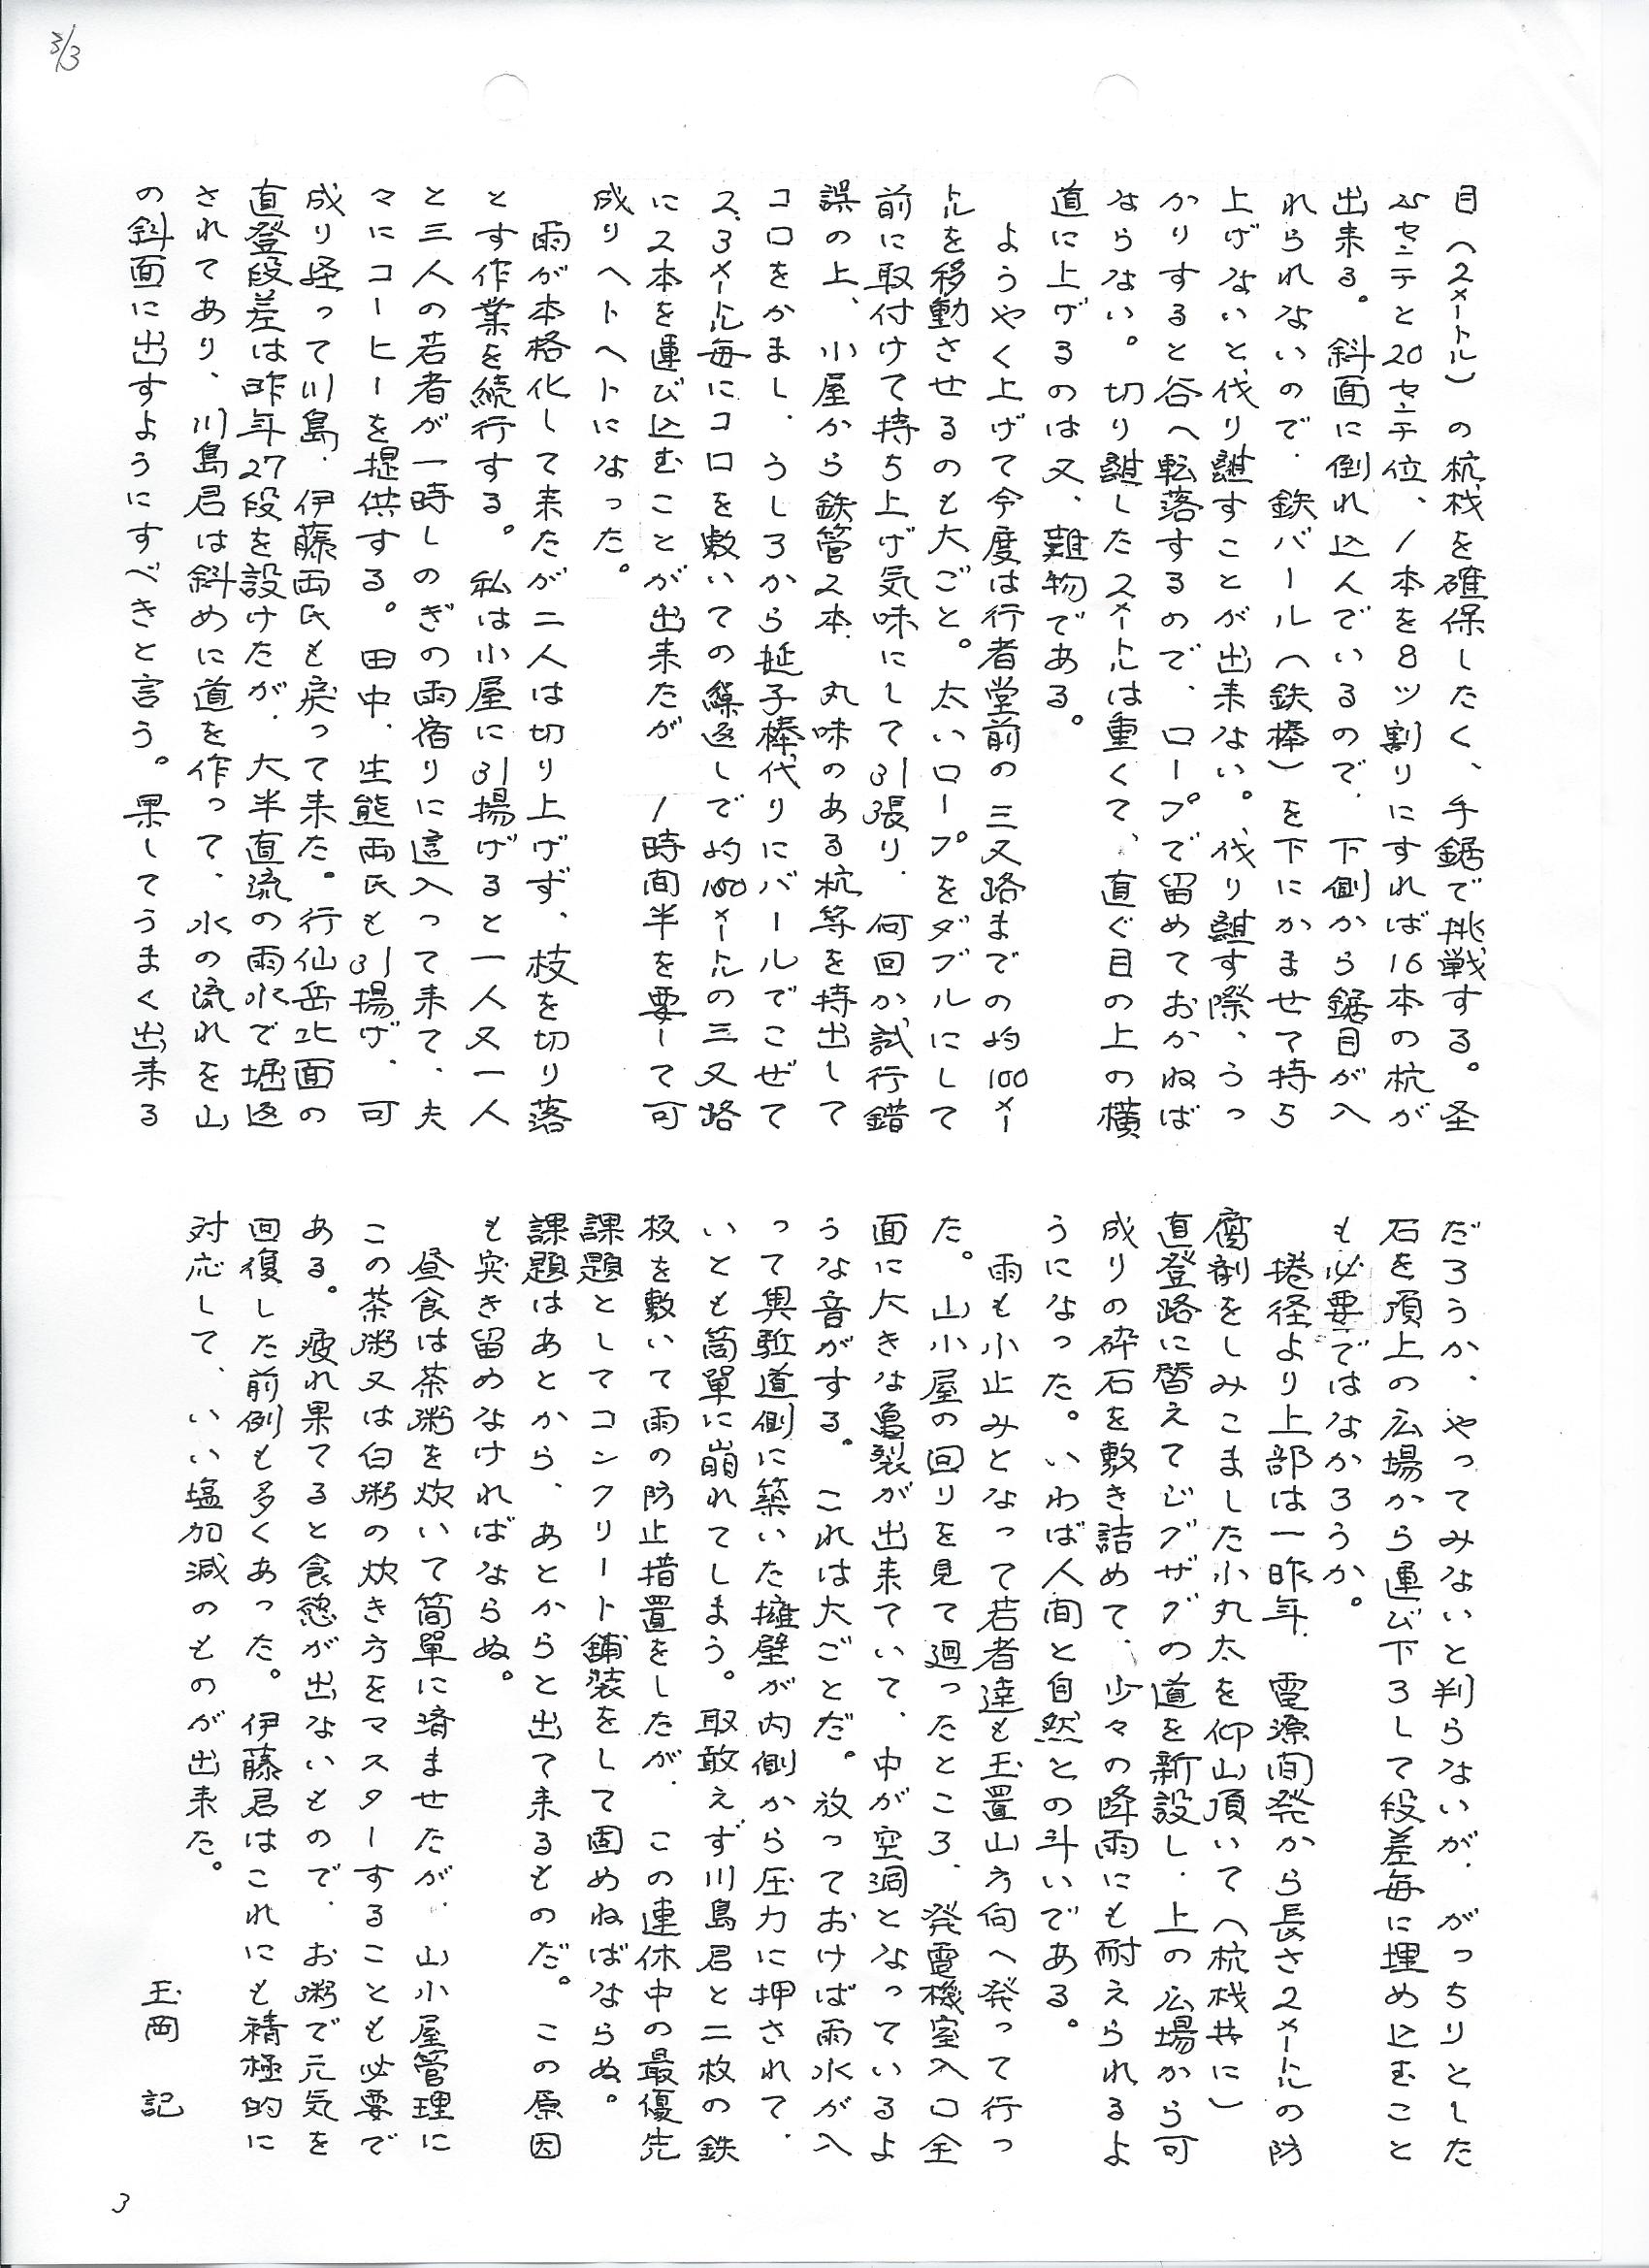 3/3
目(2メートル)の杭材を確保したく、手鋸で挑戦する。圣
25センチと20センチ位、1本を8ツ割りにすれば16本の杭が
出来る。斜面に倒れ込んでいるので、下側から鋸目が入
れられないので、鉄バール(鉄棒)を下にかませて持ち
上げないと、伐り離すことが出来ない。伐り離す際、うっ
かりすると谷へ転落するので、ロープで留めておかねば
ならない。切り離した2メートルは重くて、直ぐ目の上の横
道に上げるのは又、難物である。
ようやく上げて今度は行者堂前の三又路までの約100メー
トルを移動させるのも大ごと。太いロープをダブルにして
前に取付けて持ち上げ気味にして引張り、何回か試行錯
誤の上、小屋から鉄管2本、丸味のある杭等を持出して
コロをかまし、うしろから梃子棒代りにバールでこぜて
2、3メートル毎にコロを敷いての繰返しで約100メートルの三又路
に2本を運び込むことが出来たが 1時間半を要して可
成りヘトヘトになった。
雨が本格化して来たが二人は切り上げず、枝を切り落
とす作業を続行する。私は小屋に引揚げると一人又一人
と三人の若者が一時しのぎの雨宿りに這入って来て、夫
々にコーヒーを提供する。田中、生熊両氏も引揚げ、可
成り経って川島、伊藤両氏も戻って来た。行仙岳北面の
直登段差は昨年27段を設けたが、大半直流の雨水で堀返
されてあり、川島君は斜めに道を作って、水の流れを山
の斜面に出すようにすべきと言う。果してうまく出来る
だろうか、やってみないと判らないが、がっちりとした
石を頂上の広場から運び下ろして段差毎に埋め込むこと
も必要ではなかろうか。
捲径より上部は一昨年、電源開発から長さ2メートルの防
腐剤をしみこました小丸太を仰山頂いて(杭材共に)
直登路に替えてジグザグの道を新設し、上の広場から可
成りの砕石を敷き詰めて、少々の降雨にも耐えられるよ
うになった。いわば人間と自然との斗いである。
雨も小止みとなって若者達も玉置山方向へ発って行っ
た。山小屋の回りを見て廻ったところ、発電機室入口全
面に大きな亀裂が出来ていて、中が空洞となっているよ
うな音がする。これは大ごとだ。放っておけば雨水が入
って輿駈道側に築いた擁壁が内側から圧力に押されて、
いとも簡単に崩れてしまう。取敢えず川島君と二枚の鉄
板を敷いて雨の防止措置をしたが、この連休中の最優先
課題としてコンクリート舗装をして固めねばならぬ。
課題はあとから、あとからと出て来るものだ。この原因
も突き留めなければならぬ。
昼食は茶粥を炊いて簡単に済ませたが、山小屋管理に
この茶粥又は白粥の炊き方をマスターすることも必要で
ある。疲れ果てると食慾が出ないもので、お粥で元気を
回復した前例も多くあった。伊藤君はこれにも積極的に
対応して、いい塩加減のものが出来た。
玉岡 記
3